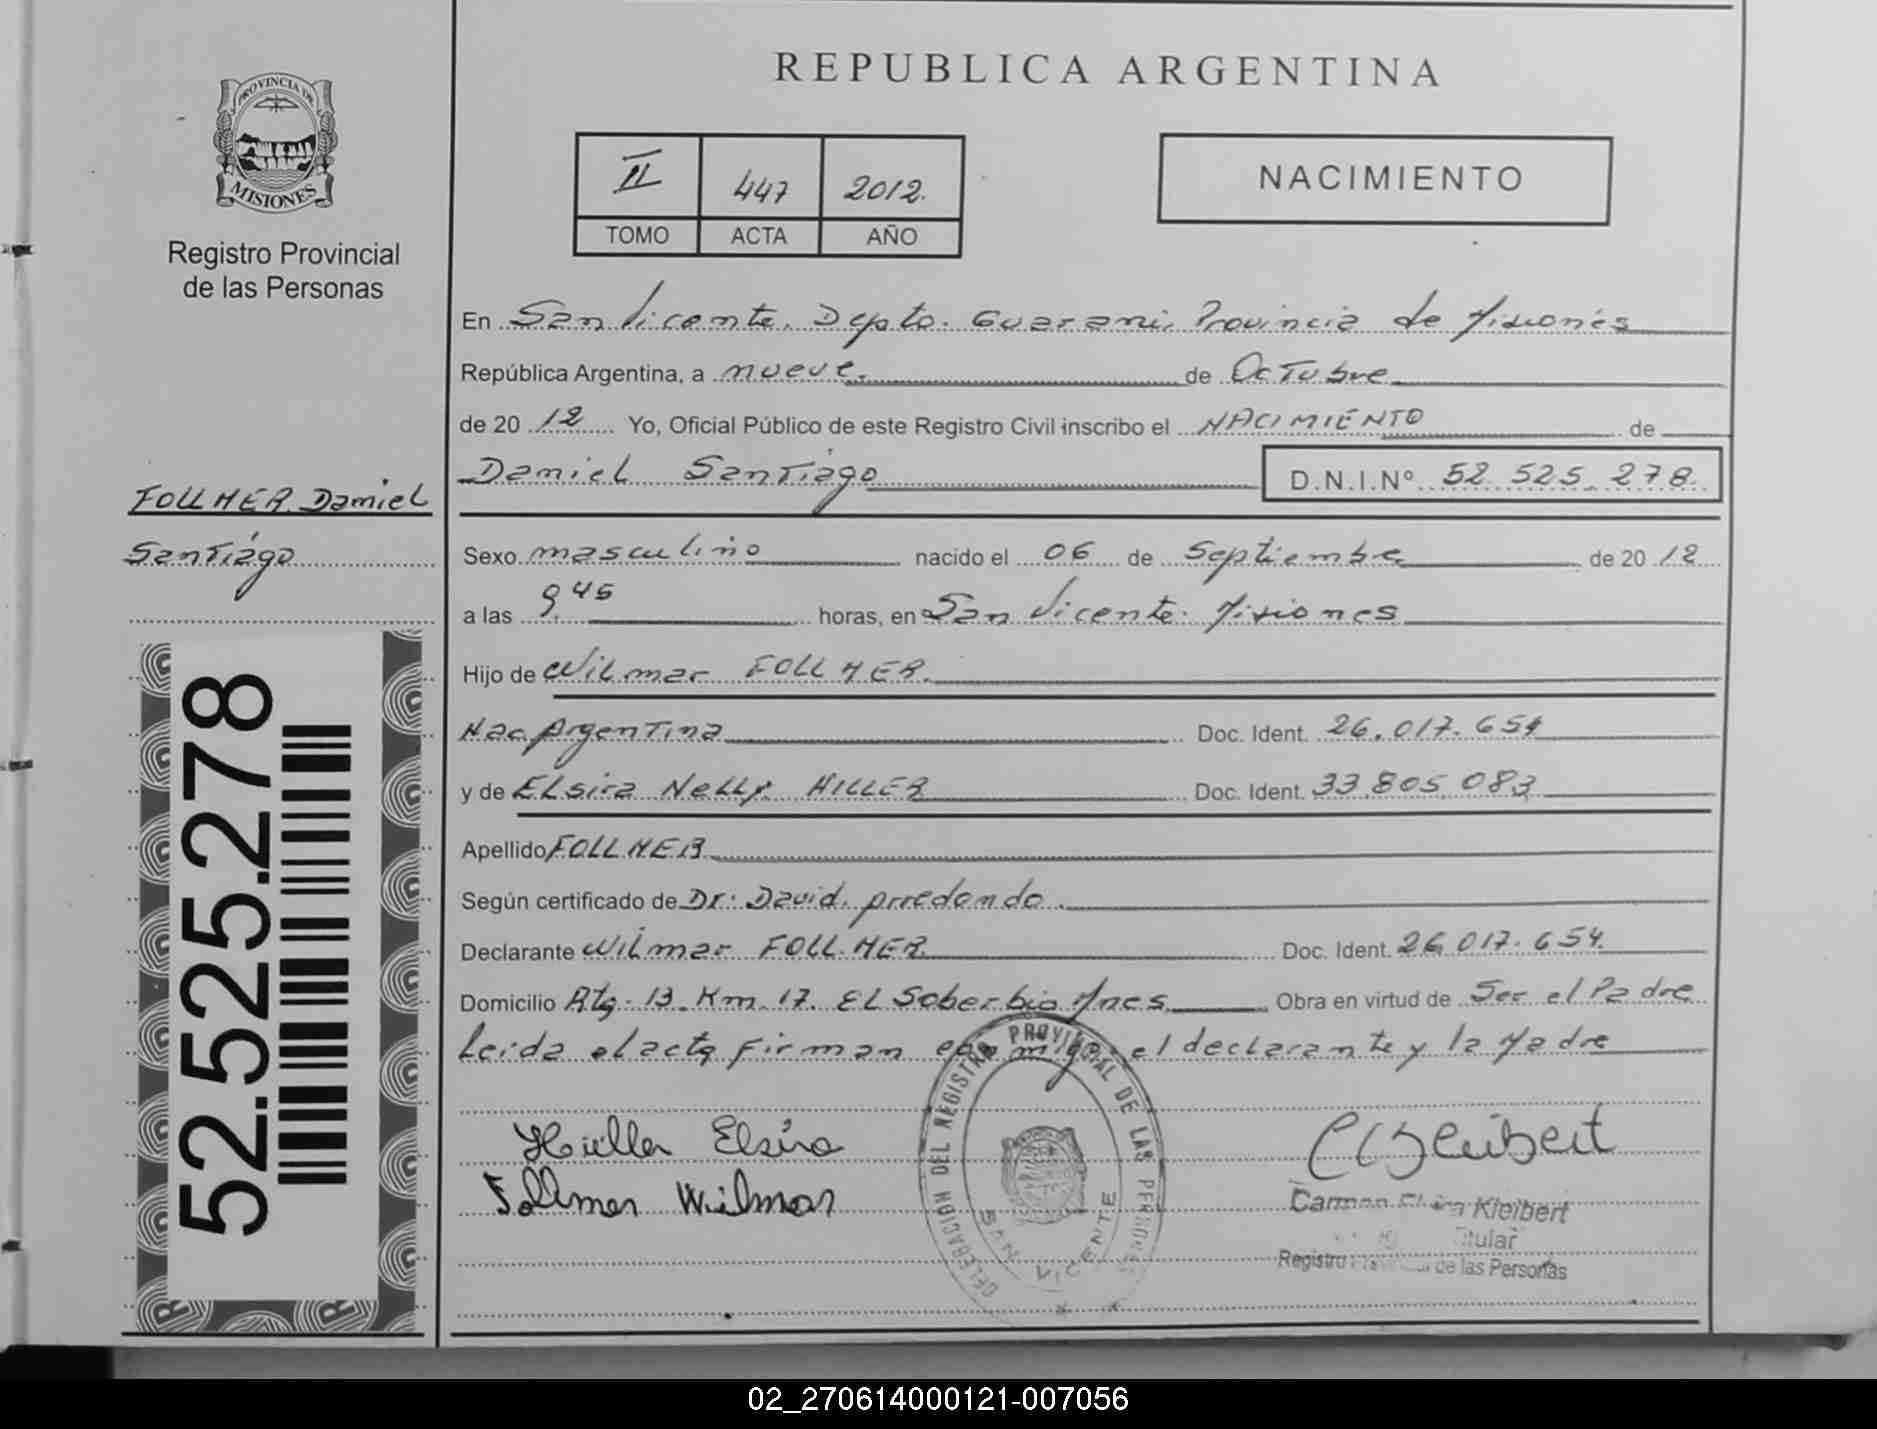 PROVINCIA DE
MISIONES
Registro Provincial
de las Personas
FOLLMER Daniel
Santiago
52.525.278
REPUBLICA ARGENTINA
II 447 2012.
TOMO ACTA AÑO
NACIMIENTO
En San Vicente, Depto. Guarani, Provincia de Misiones
República Argentina, a nueve. de Octubre
de 20 12 Yo, Oficial Público de este Registro Civil inscribo el NACIMIENTO de
Daniel Santiago D.N.I.Nº 52.525.278.
Sexo masculino nacido el 06 de Septiembre de 20 12
a las 9,45 horas, en San Vicente. Misiones
Hijo de Wilmar FOLLMER.
Nac. Argentina Doc. Ident. 26.017.654
y de Elsira Nelly HILLER Doc. Ident. 33.805.083
Apellido FOLLMER
Según certificado de Dr. David Arredondo.
Declarante Wilmar FOLLMER Doc. Ident. 26.017.654.
Domicilio Rta. 13. Km. 17. El Soberbio Mnes. Obra en virtud de Ser el Padre
Leida el acta firman conmigo el declarante y la Madre
Hiller Elsira
Follmer Wilmar
DELEGACION DEL REGISTRO PROVINCIAL DE LAS PERSONAS
SAN VICENTE
Kleibert
Titular
Registro de las Personas
02_270614000121-007056